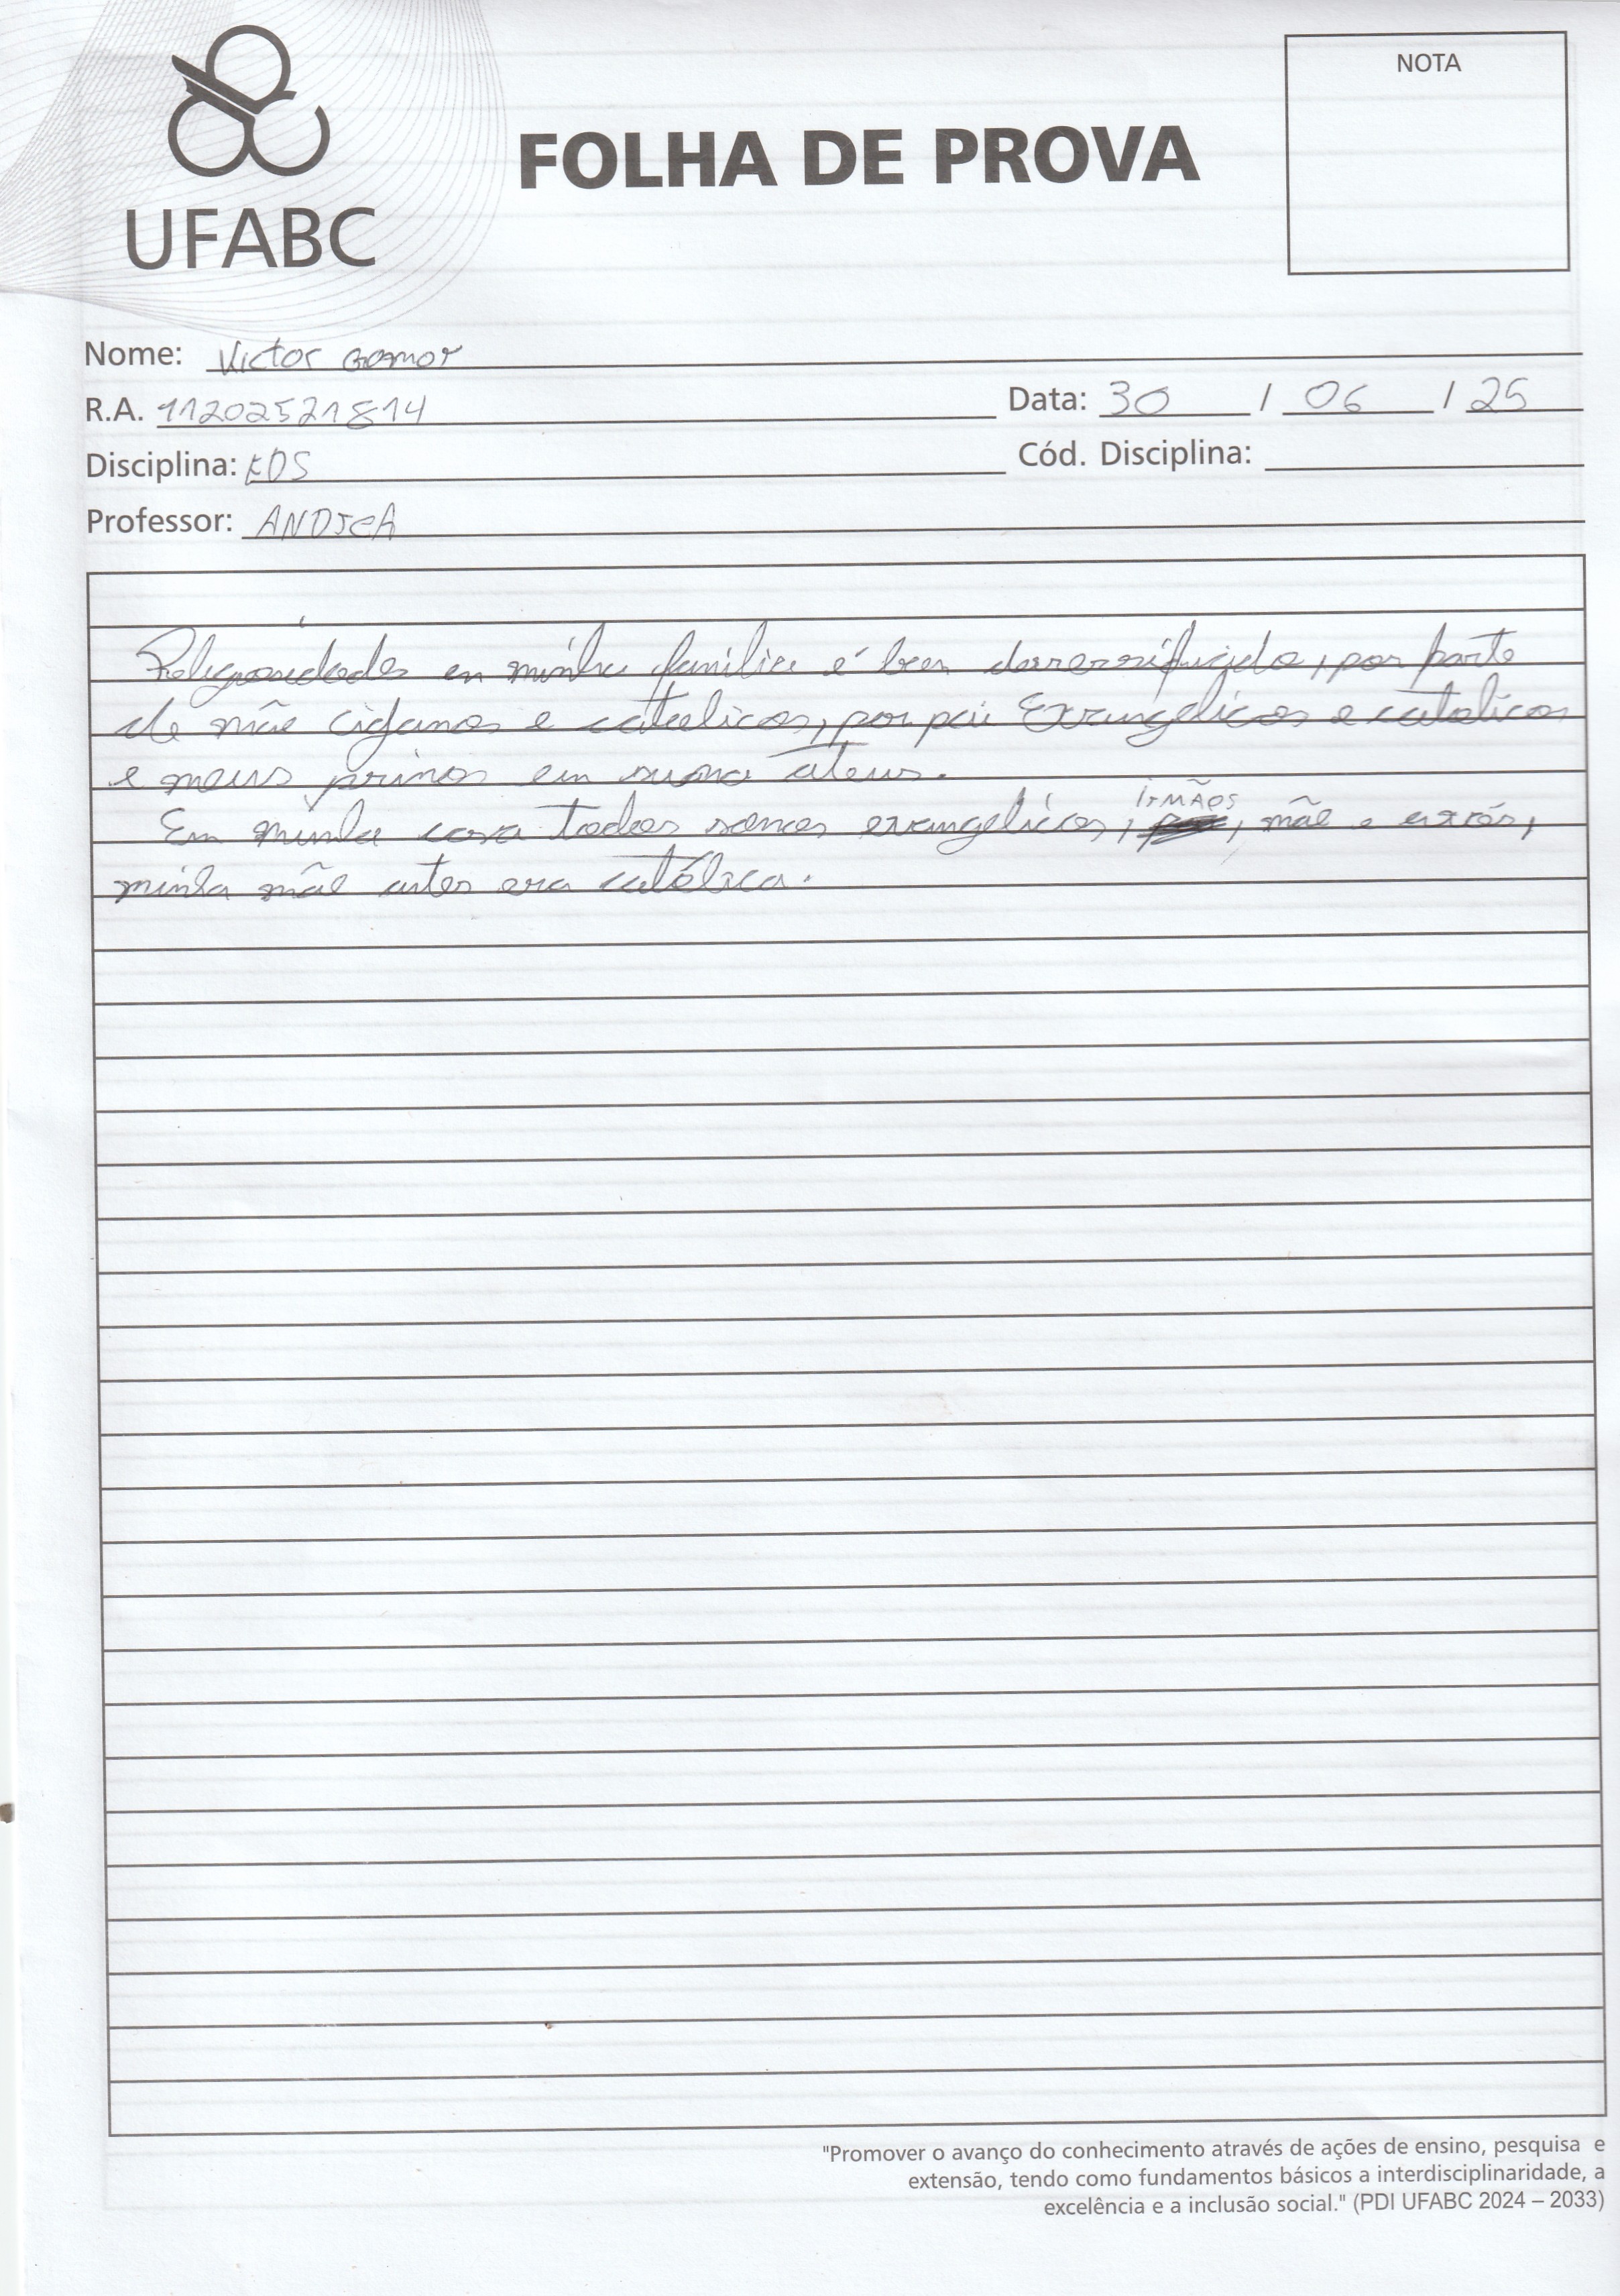 NOTA
FOLHA DE PROVA
UFABC
Nome: Victor
R.A. 11202521814 Data: 30 / 06 / 25
Disciplina: EDS Cód. Disciplina:
Professor: ANDReA
em minha família é bem diversificada, por parte
de mãe ciganos e catolicos, por pai Evangelicos e catolicos
e meus primos em suma ateus.
irMÃOS
Em minha casa todos somos evangélicos, , mãe e avós,
minha mãe antes era católica.
"Promover o avanço do conhecimento através de ações de ensino, pesquisa e
extensão, tendo como fundamentos básicos a interdisciplinaridade, a
excelência e a inclusão social." (PDI UFABC 2024 – 2033)